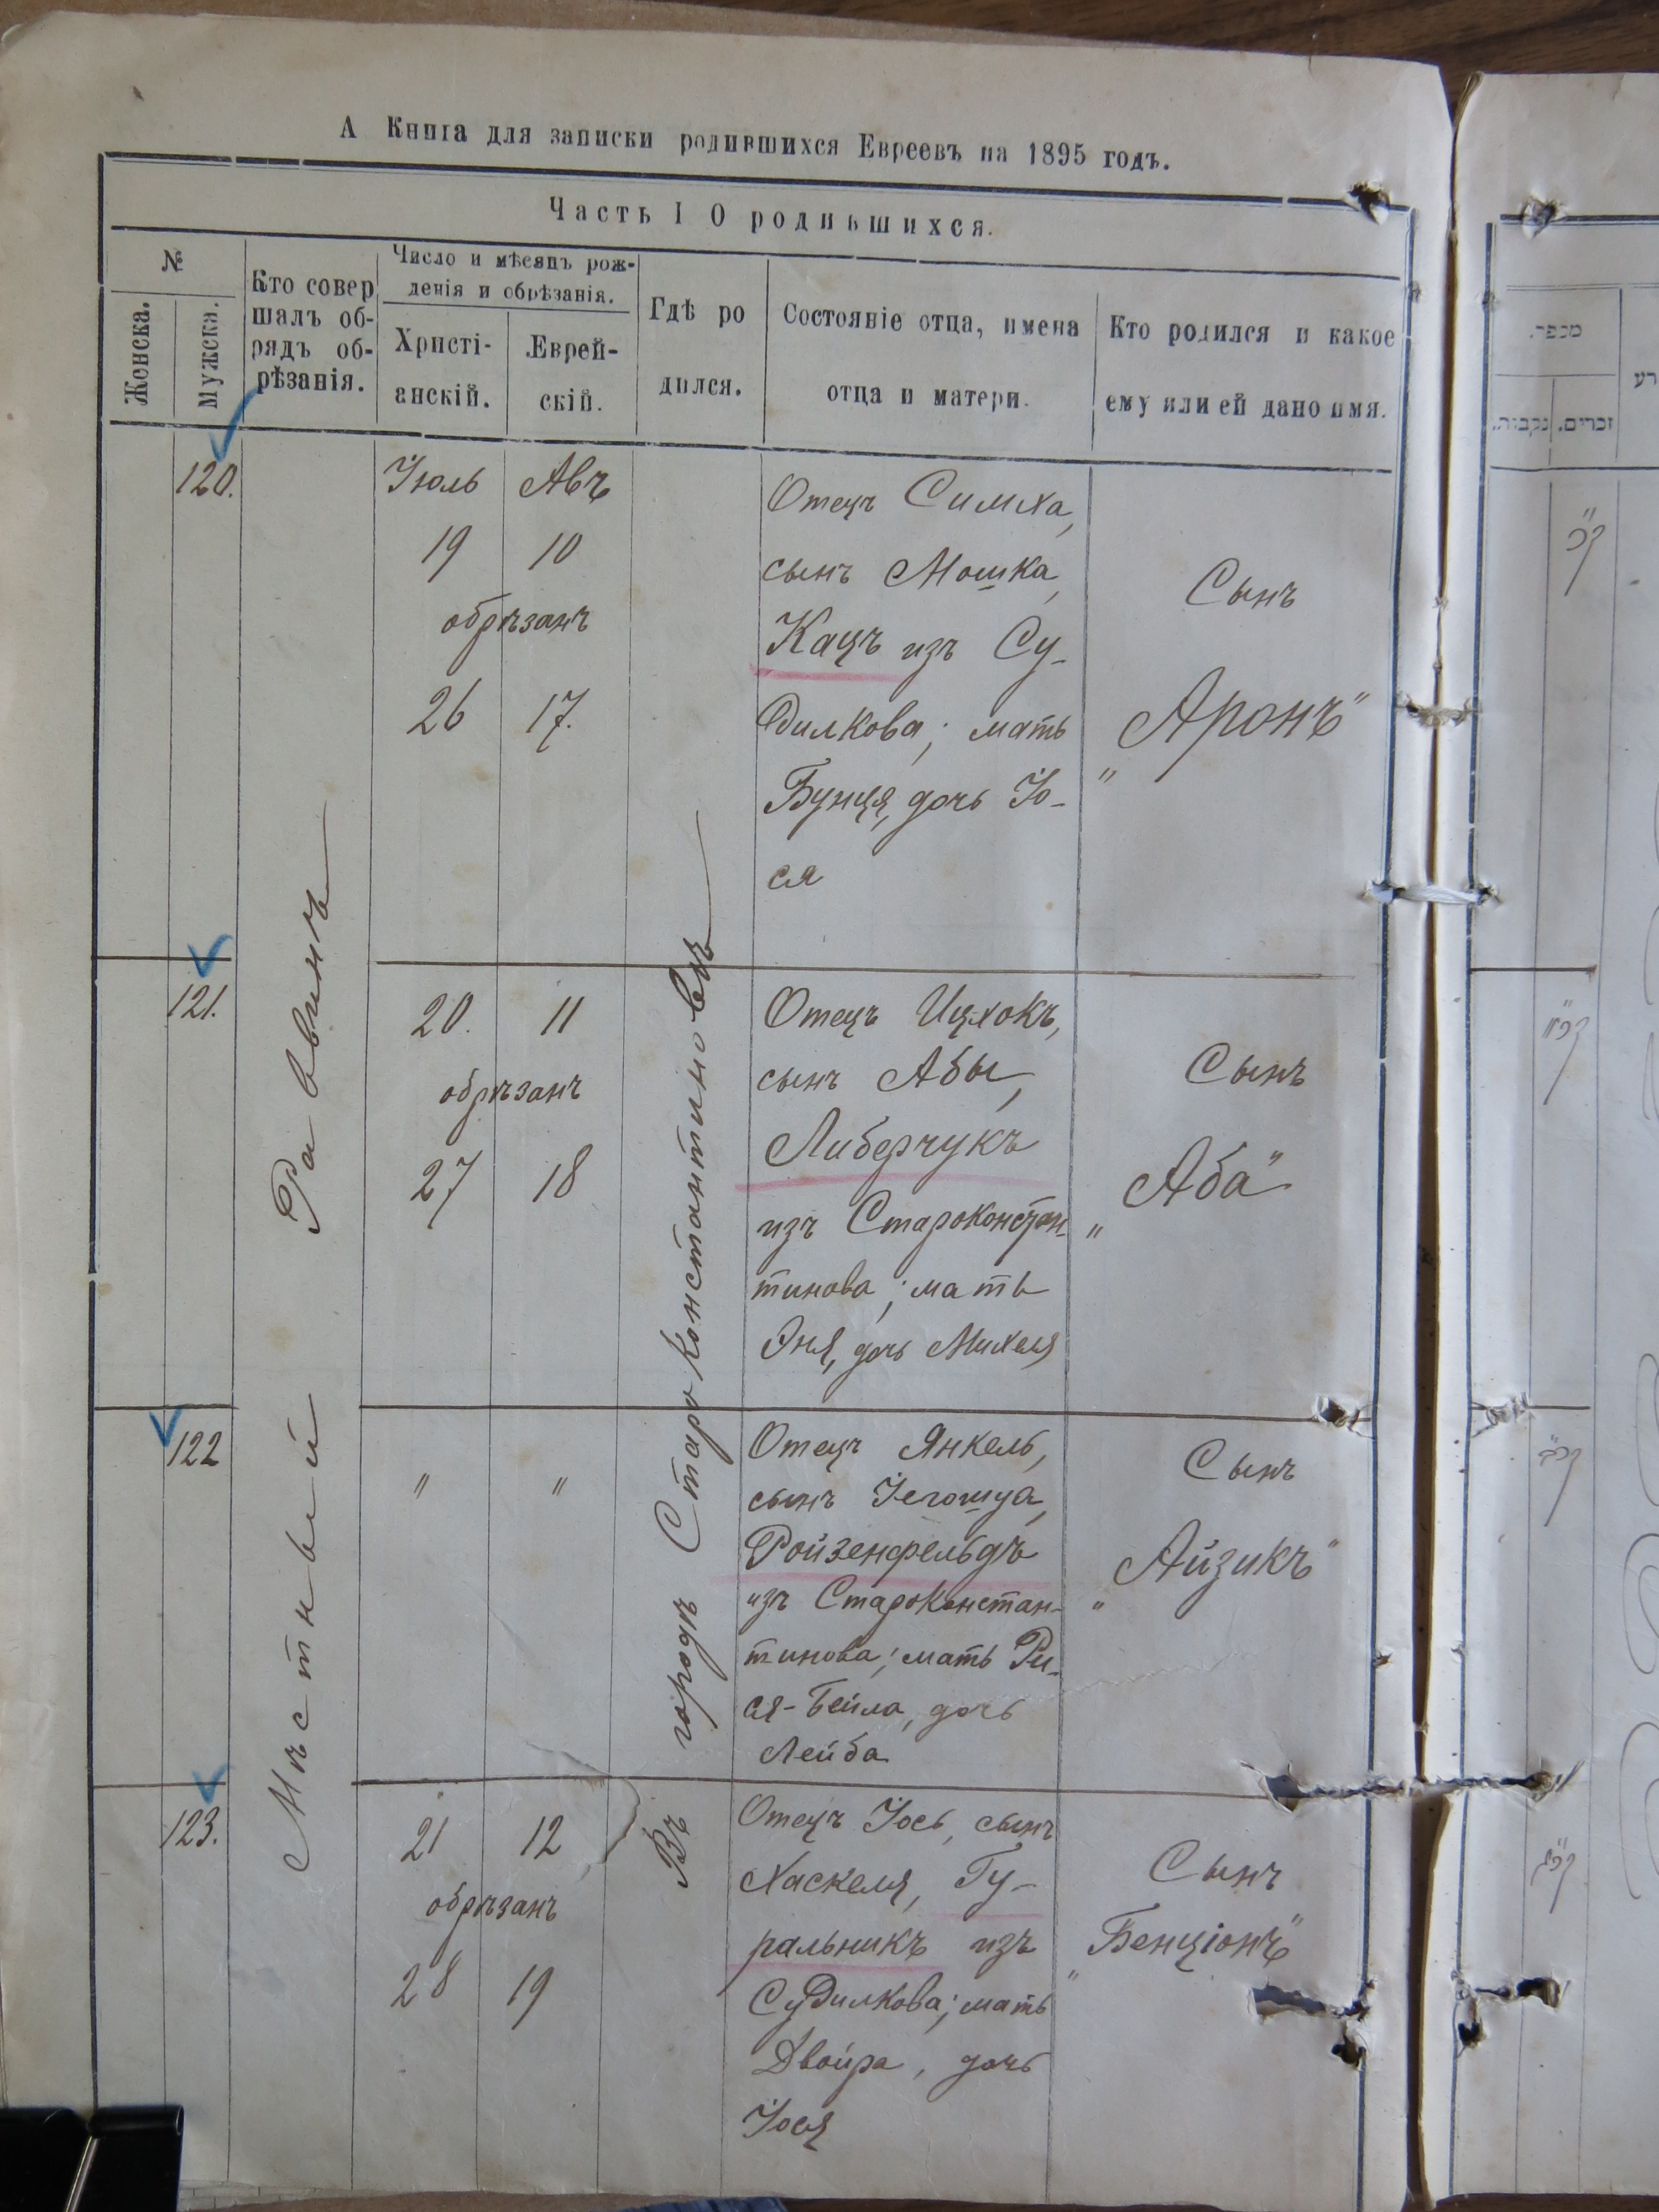 А Книга для записки родившихся Евреевъ на 1895 годъ.
Часть I О родившихся.
№
Женска.
Мужска.
Кто совер
шалъ об-
рядъ об-
рѣзанія.
Число и мѣсяцъ рож-
денія и обрѣзанія.
Христі-
анскій.
Еврей-
скій.
Гдѣ ро
дился.
Состояніе отца, имена
отца и матери.
Кто родился и какое
ему или ей дано имя.
Мѣстный Раввинъ
Въ городѣ Староконстантиновѣ
120.
Іюль Авъ
19 10
обрѣзанъ
26 17.
Отецъ Симха,
сынъ Мошка,
Кацъ изъ Су-
дилкова; мать
Бунця, дочь Іо-
ся
Сынъ
„Аронъ"
121.
20. 11
обрѣзанъ
27 18
Отецъ Ицхокъ,
сынъ Абы,
Либерчукъ
изъ Староконстан-
тинова; мать
Эня, дочь Михеля
Сынъ
„Аба"
122
" "
Отецъ Янкель,
сынъ Іегошуа,
Ройзенфельдъ
изъ Староконстан-
тинова; мать Ри-
ся-Бейла, дочь
Лейба
Сынъ
„Айзикъ"
123.
21 12
обрѣзанъ
28 19
Отецъ Іось, сынъ
Хаскеля, Гу-
ральникъ изъ
Судилкова; мать
Двойра, дочь
Іося
Сынъ
„Бенціонъ"
מספר.
נקבות.
זכרים.
ק"כ
קכ"א
קכ"ב
קכ"ג